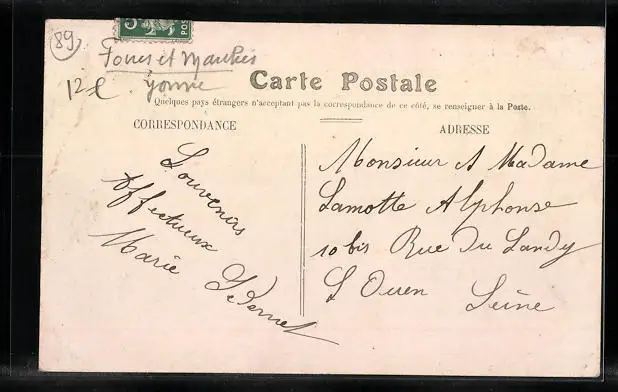 5
POS
89
Foires et Marchés
Yonne
12 €
Carte Postale
Quelques pays étrangers n'acceptant pas la correspondance de ce côté, se renseigner à la Poste.
CORRESPONDANCE
Souvenirs
affectueux
Marie
ADRESSE
Monsieur & Madame
Lamotte Alphonse
10 bis Rue du Landy
St Ouen Seine